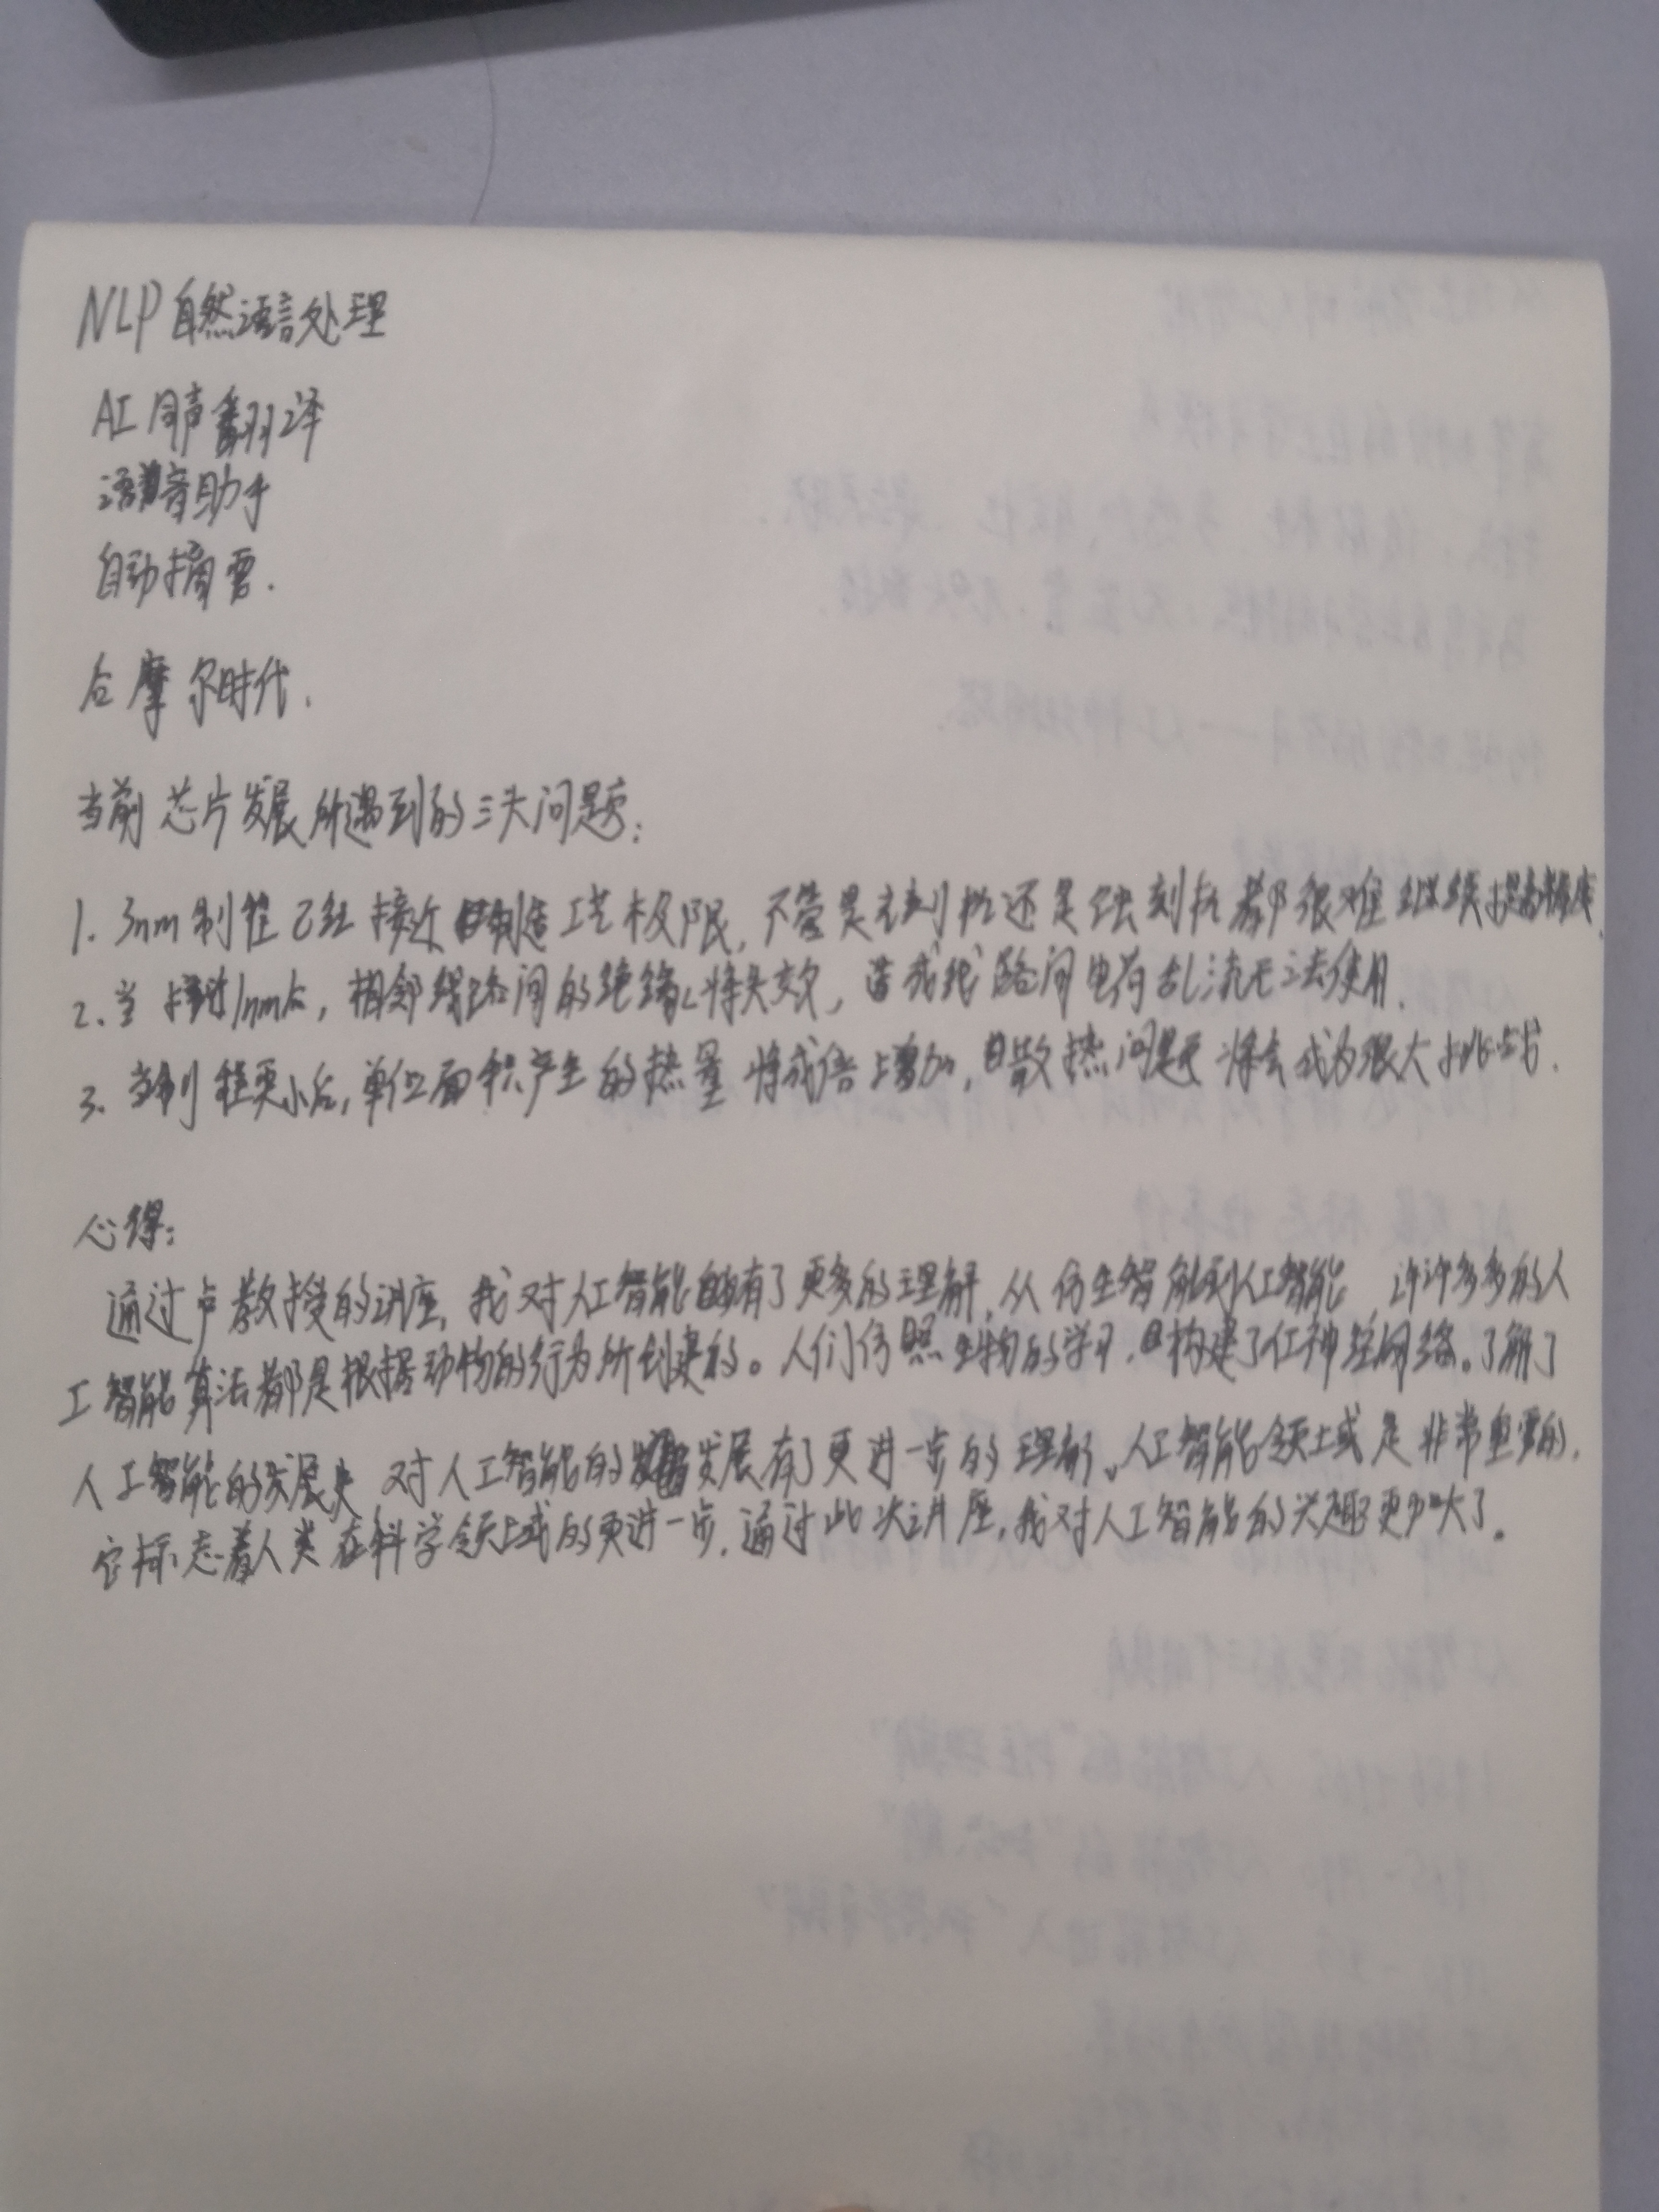 NLP 自然语言处理
AI 同声翻译
语音助手
自动摘要.
后摩尔时代.
当前芯片发展所遇到的三大问题:
1. 3nm制程已经接近制造工艺极限, 不管是光刻机还是蚀刻机都很难继续提高精度.
2. 当接近1nm后, 相邻线路间的绝缘将失效, 造成线路间电荷乱流无法使用.
3. 当制程更小后, 单位面积产生的热量将成倍增加, 散热问题将会成为很大挑战.
心得:
通过卢教授的讲座, 我对人工智能有了更多的理解, 从仿生智能到人工智能, 许许多多的人
工智能算法都是根据动物的行为所创建的。人们仿照生物的学习, 构建了人工神经网络。了解了
人工智能的发展史, 对人工智能的发展有了更进一步的理解。人工智能领域是非常重要的,
它标志着人类在科学领域的更进一步. 通过此次讲座, 我对人工智能的兴趣更加大了。